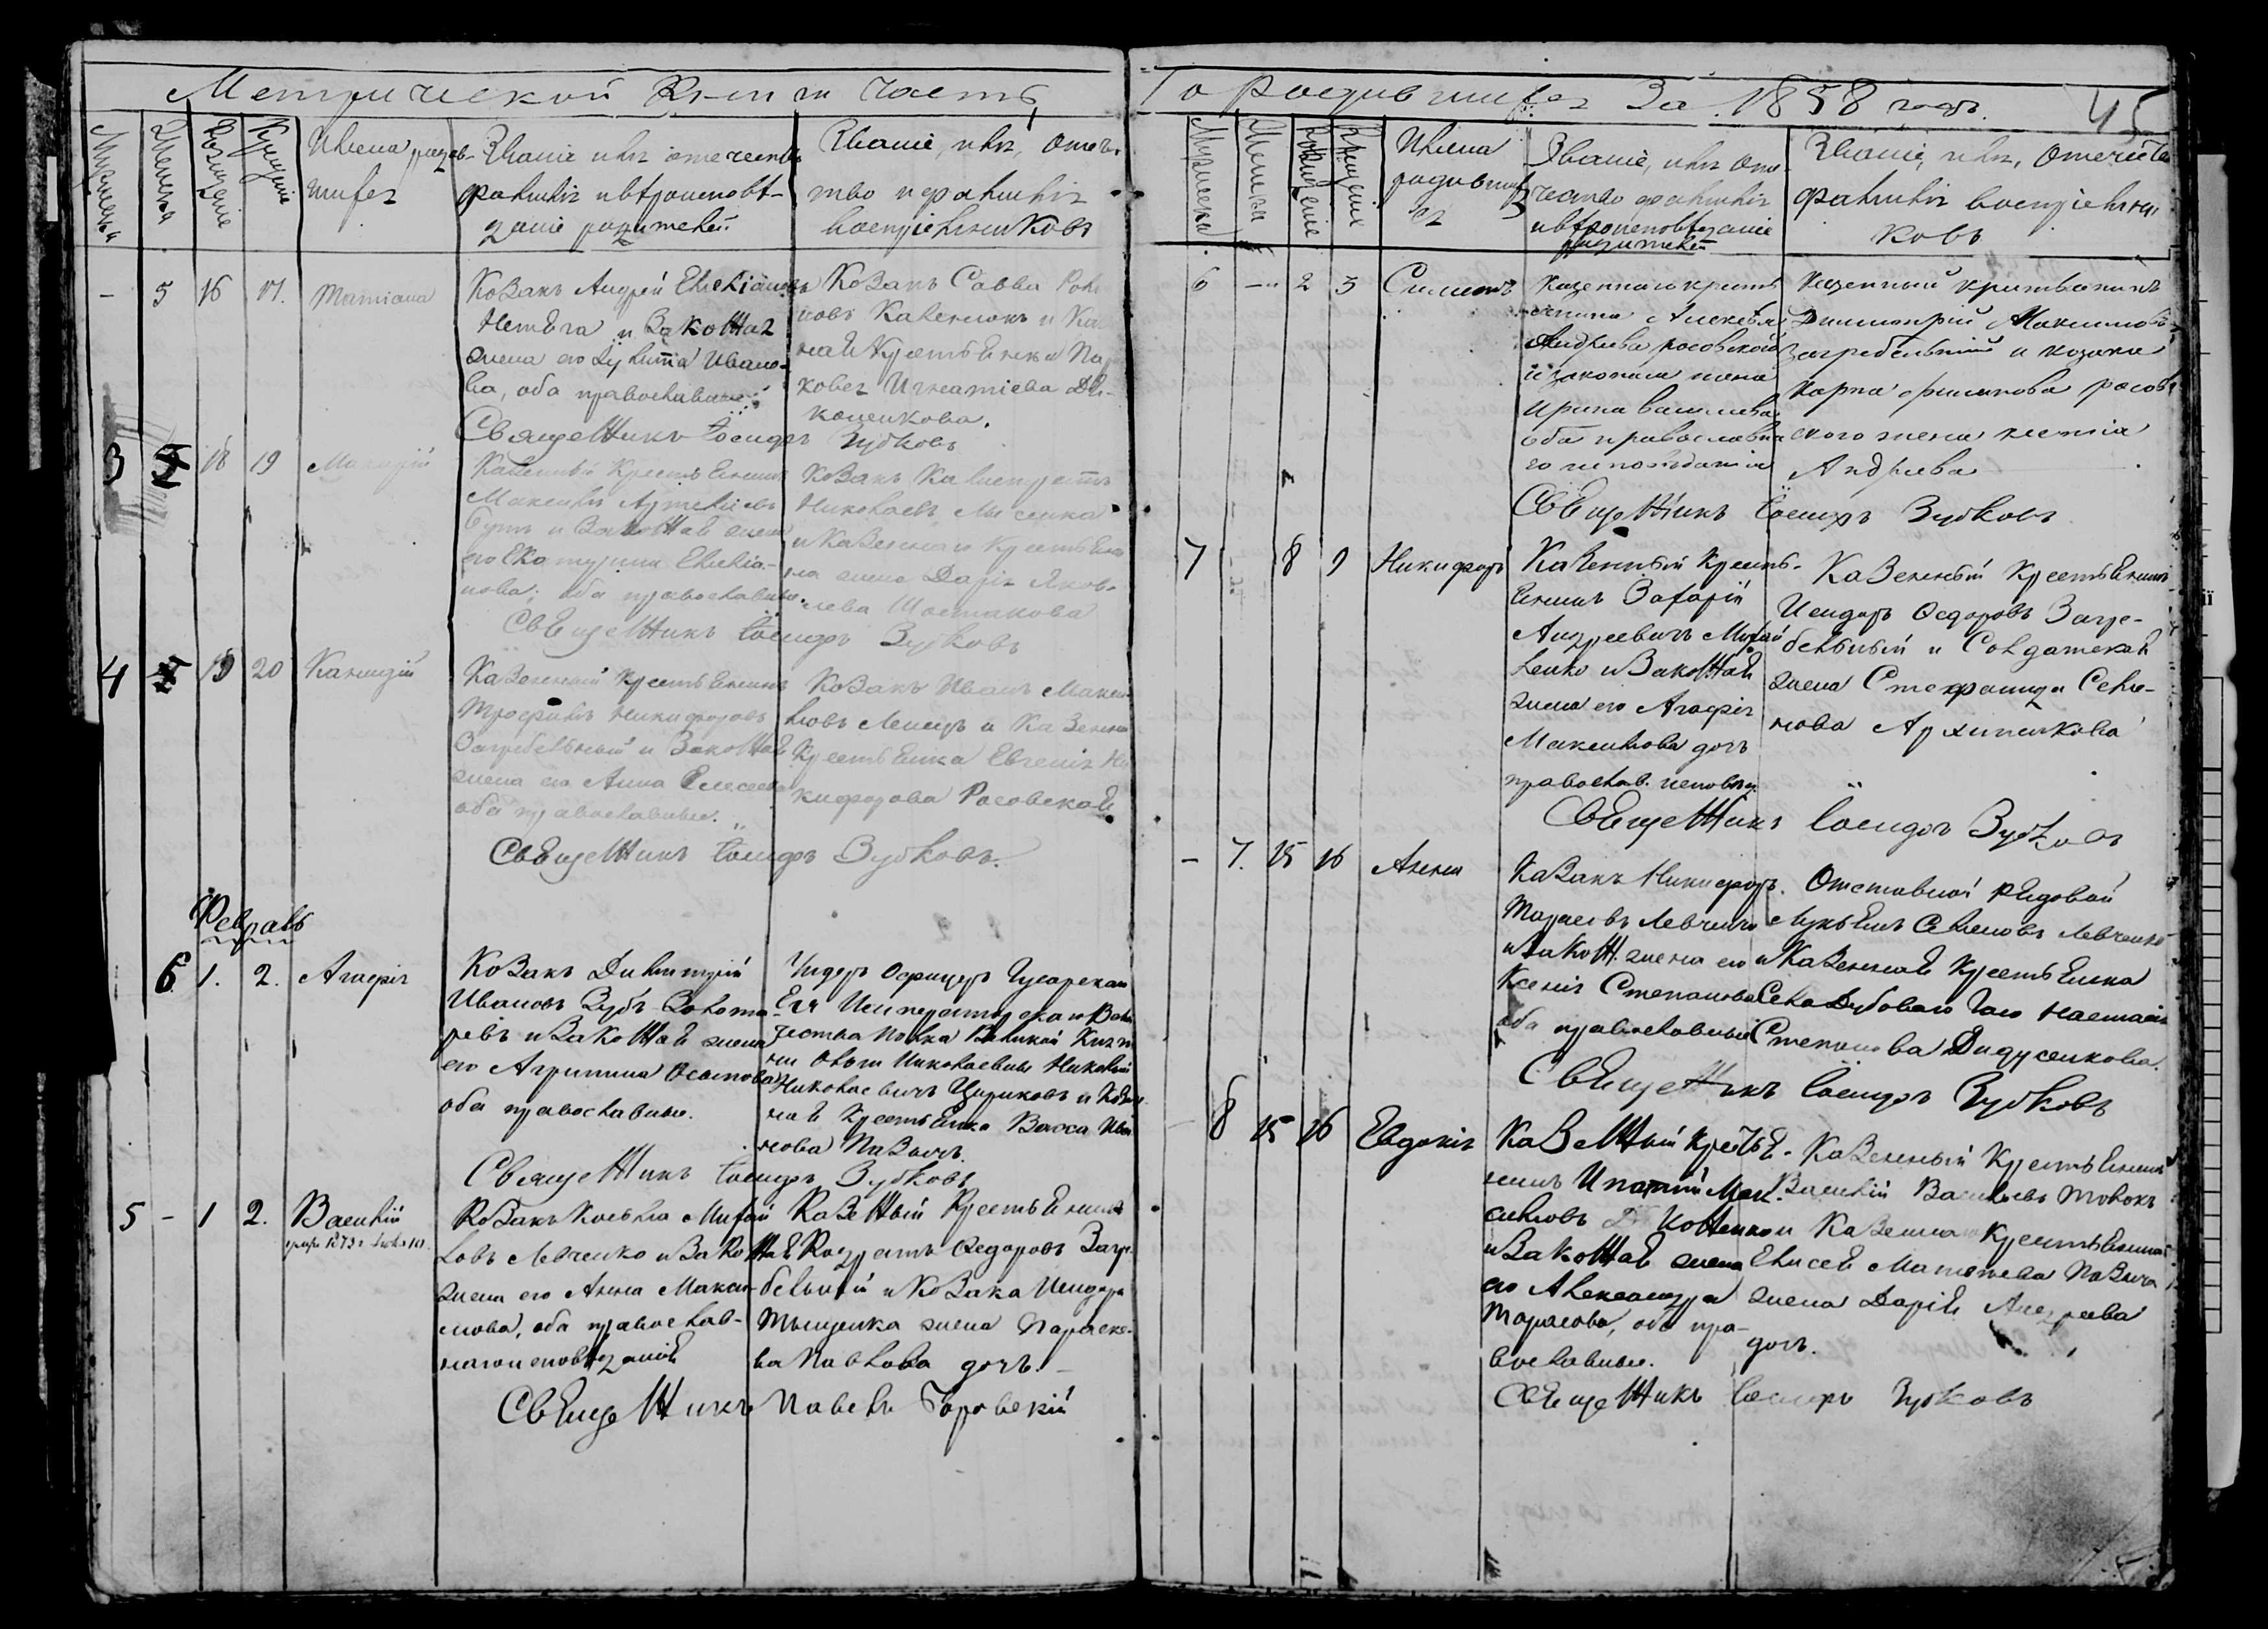 Метрической Книги Часть
Мужеска
Женска
Рожденіе
Крещеніе
Имена родив-
шихся
Званіе имя отечество
фамилія и вѣроисповѣ-
даніе родителей
Званіе, имя, отече-
тво и фамилія
воспріемниковъ
- 5 16 17. Татіана
Козакъ Андрей Емеліановъ
и Законная
жена его Иванов-
ва, оба православные
Священникъ Іосифъ Зубковъ
Козакъ Савва
новъ и Каз
ная Крестьянка
Игнатіева
коненкова.
3 18 19 Макарій
Казенный Крестьянинъ
Максимъ
и Законная жена
его Екатерина Емеліа-
нова; оба православные.
Священникъ Іосифъ Зубковъ
Козакъ Калистратъ
Николаевъ
и Казеннаго Крестьяни
на жена Дарія Яков-
лева Шостакова
4 19 20 Канидій
Казенный Крестьянинъ
Трофимъ Никифоровъ
Загребельный и Законная
жена его Анна Елисеева
оба православные.
Священникъ Іосифъ Зубковъ.
Козакъ Иванъ Макси-
мовъ и Казенная
Крестьянка Евгенія Ни
кифорова Росовская
Февраль
6 1. 2. Агафія
Козакъ Димитрій
Ивановъ Зубъ-Золота-
ревъ и Законная жена
его Агрипина Осипова
оба православные.
Священникъ Іосифъ Зубковъ
Ундеръ Офицеръ Гусарскаго
Ея Императорскаго Высо
чества Полка Великой Княж
ны Ольги Николаевны Николай
Николаевичъ Цариковъ и Казен
ная Крестьянка Васса Ива
нова
5 - 1 2. Василій
Козакъ Косьма Михай
ловъ Левченко и Закон
жена его Анна Макси-
мова, оба православ-
наго исповѣданія
Священникъ Павелъ Боровскій
Казенный Крестьянинъ
ная Кодратъ Федоровъ Загре
бельный и Козака Исидора
Тыщенка жена Параске-
ва Павлова дочь.
То Родившихся За 1858 годъ. 45
Мужеска
Женска
Рожденіе
Крещеніе
Имена
родивших
ся
Званіе, имя оте-
чество фамилія
и вѣроисповѣданіе
родителей
Званіе, имя, Отечество
фамилія воспріемни
ковъ
6 - 2 3 Симеонъ
Казеннаго крестъ
янина Алексѣя
Андреева росовскаго
и законная жена
Ирина василіева
оба православна
го исповѣданія
Священникъ Іосифъ Зубковъ
Казенный крестьянинъ
Диммитрій Максимовъ
Загребельный и козака
карпа филипова росов
скаго жена ксенія
Андреева
7 8 9 Никифоръ
Казенный Кресть-
янинъ Захарій
Андреевичъ Михай
ленко и Законная
жена его Агафія
Максимова дочь
православ. исповѣд.
Священникъ Іосифъ Зубковъ
Казенный Крестьянинъ
Исидоръ Федоровъ Загре-
бельный и Солдатская
жена Стефанида Семе-
нова Архипенкова
- 7. 15 16 Анна
Казакъ Никифоръ
Тарасовъ Левченко
и Законн. жена его
Ксенія Степанова
оба православные
Священникъ Іосифъ Зубковъ
Отставной рядовой
Лукьянъ Семеновъ Левченко
и Казенная Крестьянка
Села Дубоваго Гаю Настасія
Степанова Дидусенкова.
- 8 15 16 Евдокія
Казенный Крестья-
нинъ Ипатій Мак-
симовъ
и Законная жена
его Александра
Тарасова, оба пра-
вославные.
Священникъ Іосифъ Зубковъ
Казенный Крестьянинъ
Василій Васильевъ
и Казеннаго Крестьянина
Елисея Матвѣева
жена Дарія Андреева
дочь.